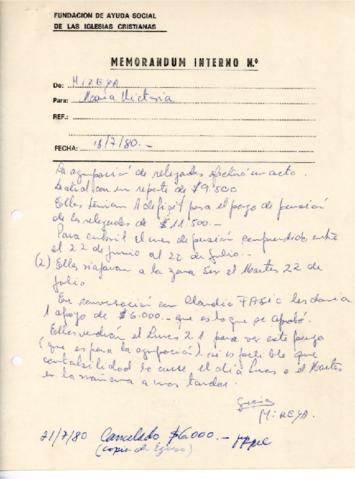 FUNDACION DE AYUDA SOCIAL
DE LAS IGLESIAS CRISTIANAS
MEMORANDUM INTERNO N.º
De: MIREYA
Para: María Victoria
REF.:
FECHA: 18/7/80.-
La agrupación de relegados efectuó un acto.
con un reporte de $9.500
Ellos tenían 1 deficit para el pago de pensión
de los relegados de $11.500.-
Para cubrir el mes de pensión comprendido entre
el 22 de junio al 22 de julio.-
(2) Ellos viajaran a la zona Sur el Martes 22 de
julio
En conversación con Claudio FASIC les daria
1 apogo de $6.000.- que es lo que se aprobó.
Ellos vendrán el Lunes 21 para ver este pago
(que es para la agrupación). si es posible que
contabilidad lo curse, el día Lunes o el Martes
en la mañana a mas tardar.
Gracias
MIREYA.
21/7/80 Cancelado $6.000.-
(copia de Egreso)